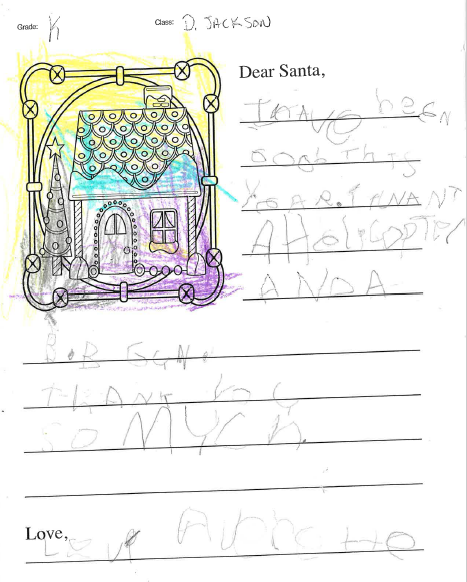 Grade: K Class: D. JACKSON
Dear Santa,
I HAVE bEEN
GOOD THIS
YEAR. I WANT
A HELICOPTER
AND A
B.B GUN.
THANK
SO MYCH.
Love,